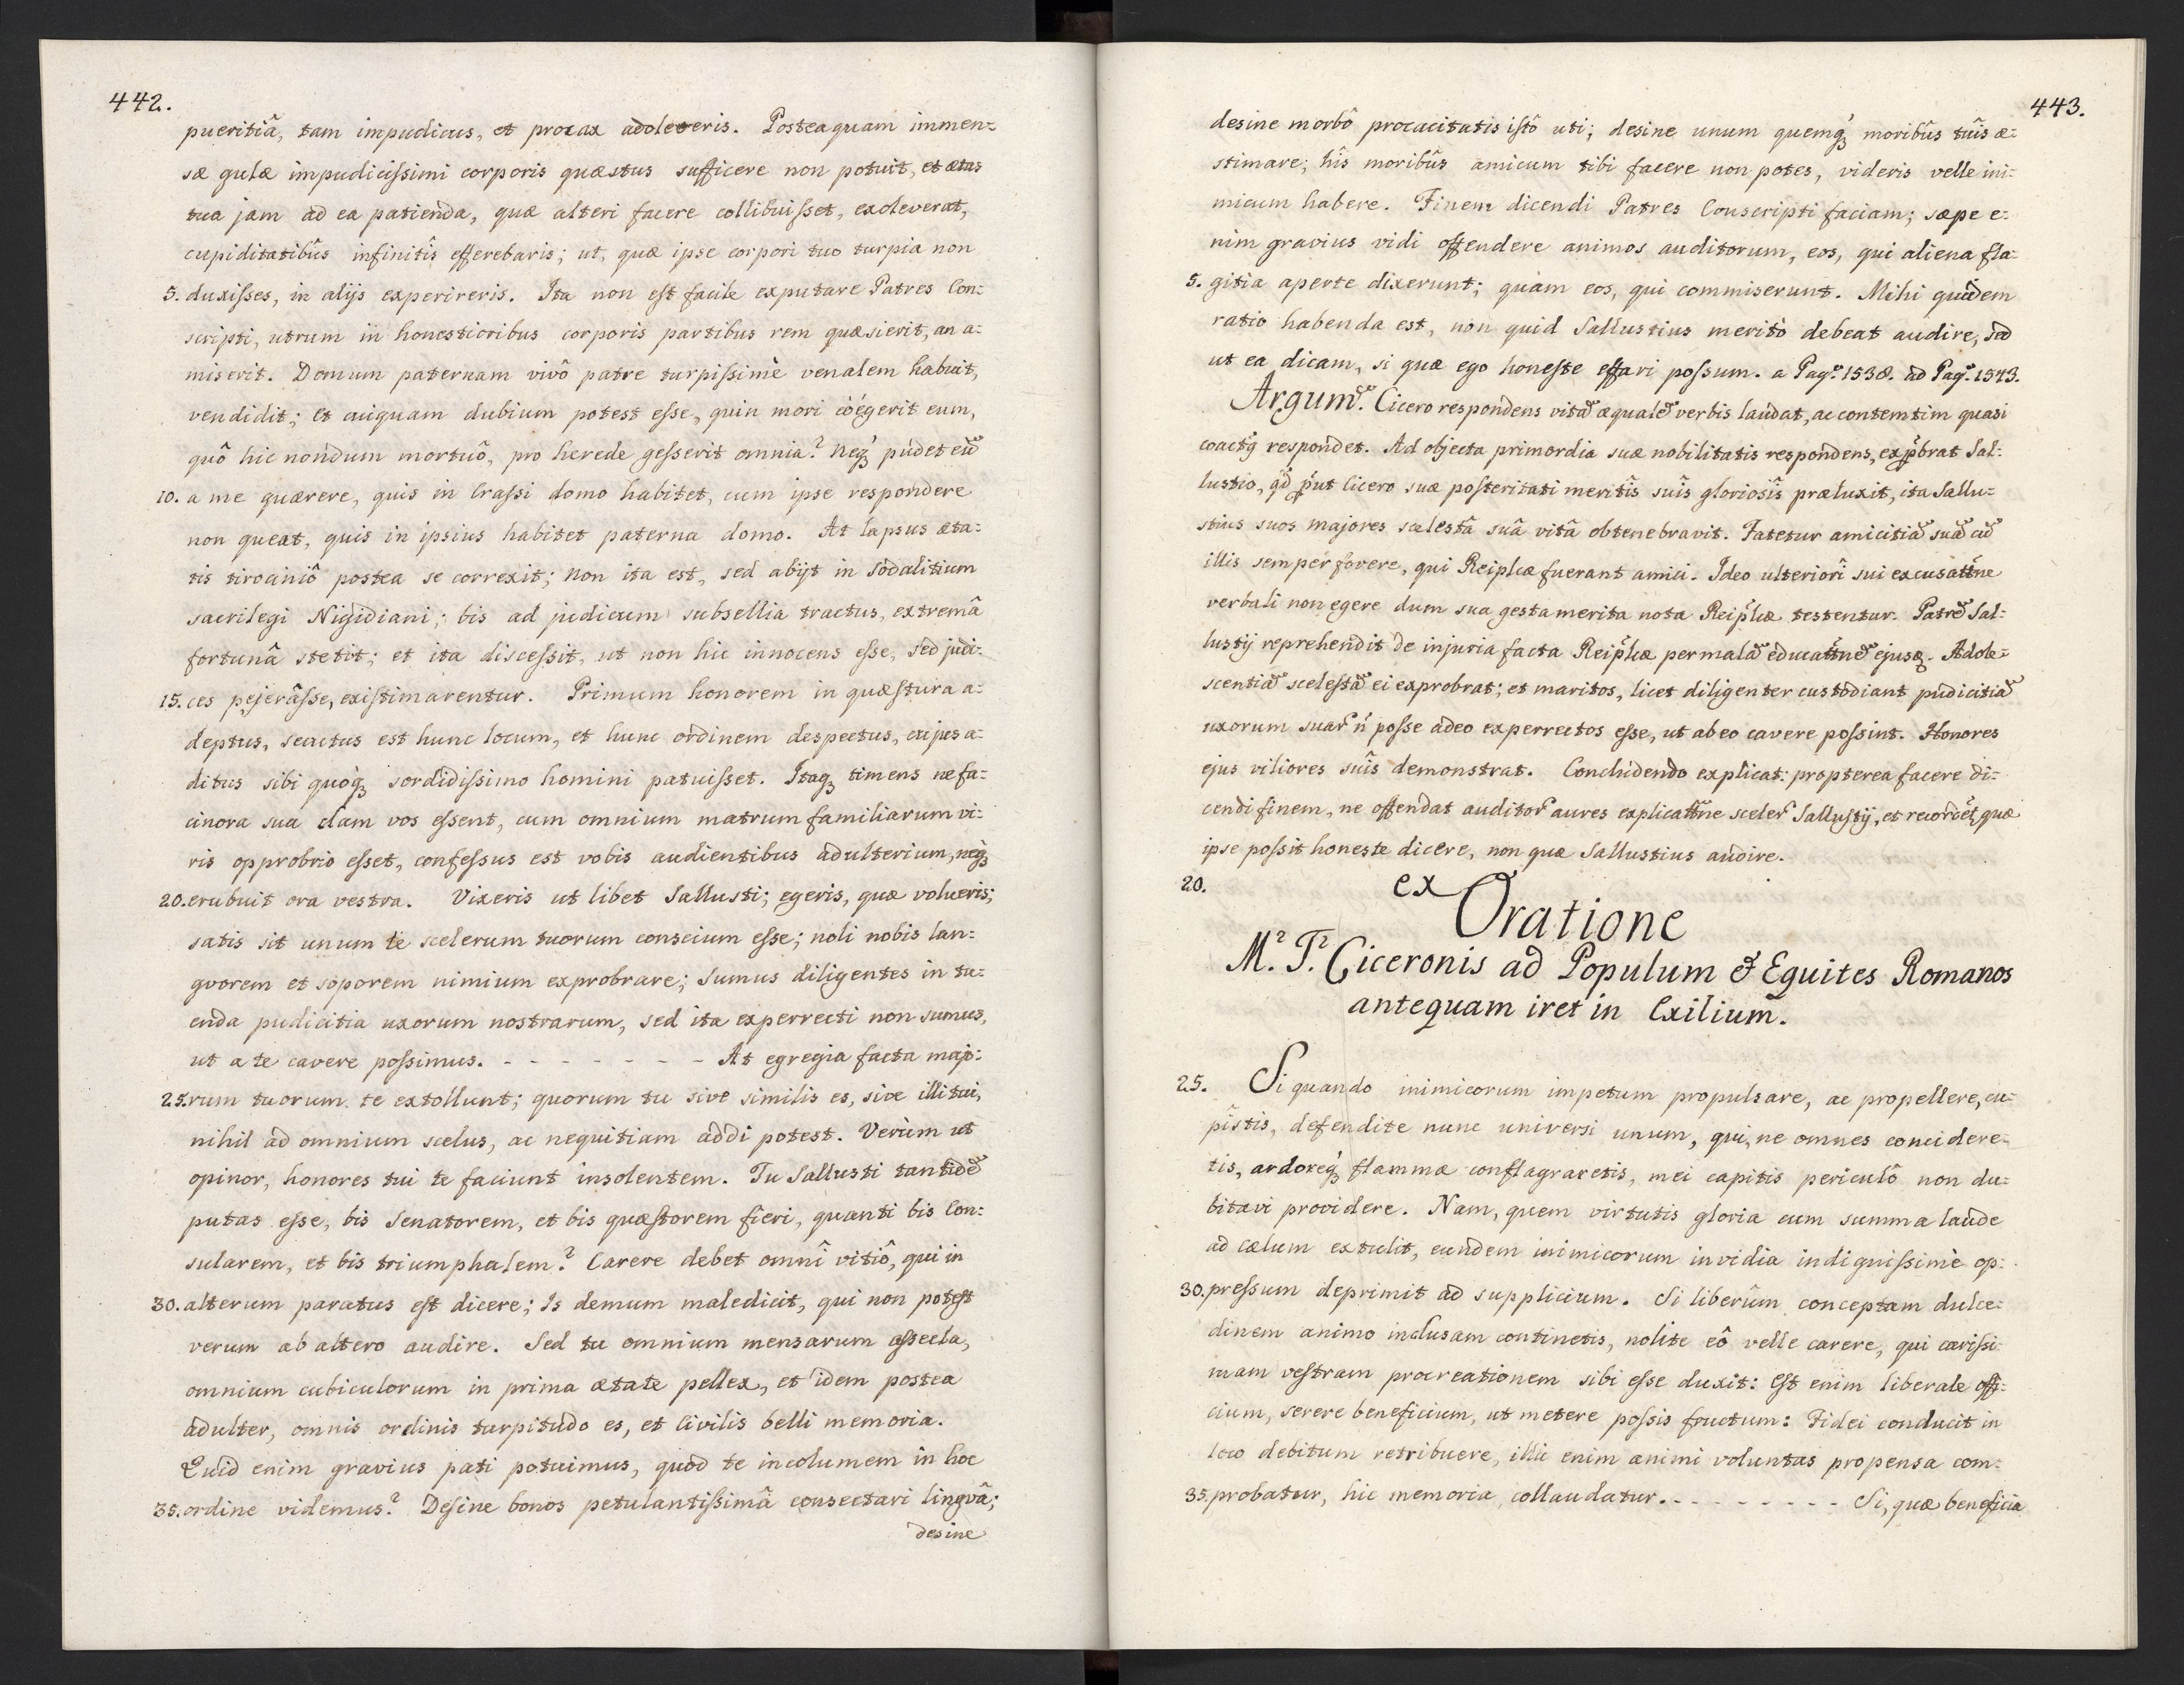 442.
pueritiâ, tam impudicus, et procax adoleveris. Posteaquam immen=
sæ gulæ impudicissimi corporis quæstus sufficere non potuit, et ætas
tua jam ad ea patienda, quæ alteri facere collibuisset, exoleverat,
cupiditatibûs infinitîs efferebaris; ut, quæ ipse corpori tuo turpia non
5. duxisses, in alijs experireris. Ita non est facile exputare Patres Con=
scripti, utrum in honestioribus corporis partibus rem quæsierit, an a=
miserit. Domum paternam vivô patre turpissimè venalem habuit,
vendidit; et cuiquam dubium potest esse, quin mori coégerit eum,
quô hic nondum mortuô, pro herede gesserit omnia? neq́ꝫ pudet eū
10. a me quærere, quis in Crassi domo habitet, cum ipse respondere
non queat, quis in ipsius habitet paterna domo. At lapsus æta=
tis tirociniô postea se correxit; non ita est, sed abijt in sodalitium
sacrilegi Nigidiani; bis ad judicum subsellia tractus, extremâ
fortunâ stetit; et ita discessit, ut non hic innocens esse, sed judi=
15. ces pejerâsse, existimarentur. Primum honorem in quæstura a=
deptus, secutus est hunc locum, et hunc ordinem despectus, cujus a=
ditus sibi quoq́ꝫ sordidissimo homini patuisset. Itaqꝫ timens ne fa=
cinora sua clam vos essent, cum omnium matrum familiarum vi=
ris opprobrio esset, confessus est vobis audientibus adulterium, neq́ꝫ
20. erubuit ora vestra. Vixeris ut libet Sallusti; egeris, quæ volueris;
satis sit unum te scelerum tuorum conscium esse; noli nobis lan=
gvorem et soporem nimium exprobrare; sumus diligentes in tu=
enda pudicitia uxorum nostrarum, sed ita experrecti non sumus,
ut a te cavere possimus. - - - - - - - At egregia facta majo=
25. rum tuorum te extollunt; quorum tu sive similis es, sive illi tui,
nihil ad omnium scelus, ac nequitiam addi potest. Verùm ut
opinor, honores tui te faciunt insolentem. Tu Sallusti tantidē
putas esse, bis Senatorem, et bis quæstorem fieri, quanti bis Con=
sularem, et bis triumphalem? Carere debet omnî vitiô, qui in
30. alterum paratus est dicere; Is demum maledicit, qui non potest
verum ab altero audire. Sed tu omnium mensarum assecla,
omnium cubiculorum in prima ætate pellex, et idem postea
adulter, omnis ordinis turpitudo es, et Civilis belli memoria.
Quid enim gravius pati potuimus, quod te incolumem in hoc
35. ordine videmus? Desine bonos petulantissimâ consectari lingvâ;
desine
443.
desine morbô procacitatis istô uti; desine unum quemq́ꝫ moribûs tuîs æ=
stimare; hîs moribûs amicum tibi facere non potes, videris velle ini=
micum habere. Finem dicendi Patres Conscripti faciam; sæpe e=
nim gravius vidi offendere animos auditorum, eos, qui aliena fla=
5. gitia aperte dixerunt; quàm eos, qui commiserunt. Mihi quidem
ratio habenda est, non quid Sallustius meritò debeat audire, sed
ut ea dicam, si quæ ego honeste effari possum. a Pag. 1538. ad Pag. 1543.
Argum̄. Cicero respondens vitā æqualē verbis laudat, ac contemtim quasi
coactꝰ respondet. Ad objecta primordia suæ nobilitatis respondens, exꝓbrat Sal=
lustio, qd́ ꝓut Cicero suæ posteritati meritîs suîs gloriosîs præluxit, ita Sallu=
stius suos majores scelestâ suâ vitâ obtenebravit. Fatetur amicitiā suā cū
illis semper fovere, qui Reiplicæ fuerant amici. Ideo ulteriorî sui excusatt̄ne
verbali non egere dum sua gesta merita nota Reiplicæ testentur. Patrē Sal=
lustij reprehendit de injuria facta Reiplicæ per malā educatt̄nē ejusꝗ. Adole=
scentiā scelestā ei exprobrat; et maritos, licet diligenter custodiant pudicitiā
uxorum suar̃ ń posse adeo experrectos esse, ut ab eo cavere possint. Honores
ejus viliores suîs demonstrat. Concludendo explicat: propterea facere di=
cendi finem, ne offendat auditor̃ aures explicatt̄ne sceler̃ Sallustij, et recordet̃, quæ
ipse possit honeste dicere, non quæ Sallustius audire.
20. ex
Oratione
M. T. Ciceronis ad Populum & Equites Romanos
antequam iret in Exilium.
25. Si quando inimicorum impetum propulsare, ac propellere, cu=
pîstis, defendite nunc universi unum, qui, ne omnes concidere=
tis, ardoreq́ꝫ flammæ conflagraretis, mei capitis periculô non du=
bitavi providere. Nam, quem virtutis gloria cum summa laude
ad cælum extulit, eundem inimicorum invidia indignissimè op=
30. pressum deprimit ad supplicium. Si liberûm conceptam dulce=
dinem animo inclusam continetis, nolite eô velle carere, qui carissi=
mam vestram procreationem sibi esse duxit: Est enim liberale offi=
cium, serere beneficium, ut metere possis fructum: Fidei conducit in
loco debitum retribuere, illic enim animi voluntas propensa com=
35. probatur, hic memoria collaudatur. - - - - - - - - Si, quæ beneficia